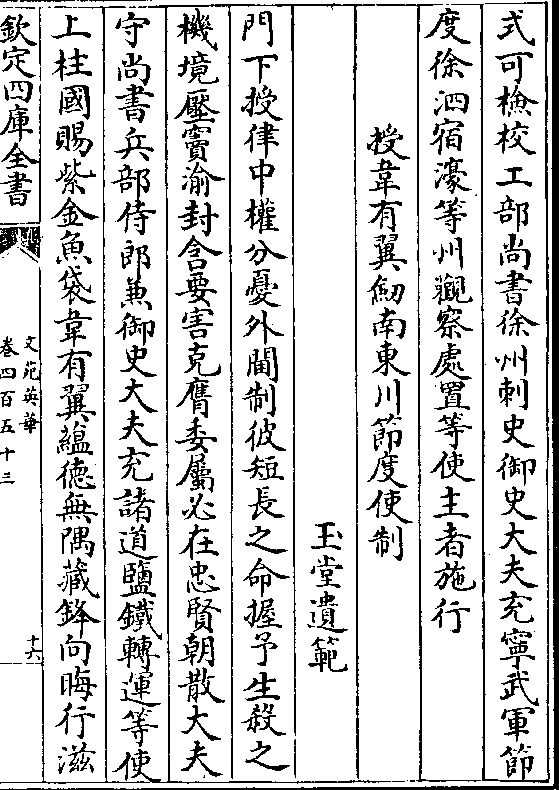 式可檢校工部尚書徐州刺史御史大夫充寧武軍節
度徐泗宿濠等州觀察處置等使主者施行
授韋有翼劒南東川節度使制
玉堂遺範
門下授律中權分憂外閫制彼短長之命握予生殺之
機境壓竇渝封含要害克膺委屬必在忠賢朝散大夫
守尚書兵部侍郎兼御史大夫充諸道鹽鐵轉運等使
上柱國賜紫金魚袋韋有翼蘊德無隅藏鋒向晦行滋
欽定四庫全書
文苑英華
卷四百五十三
十六